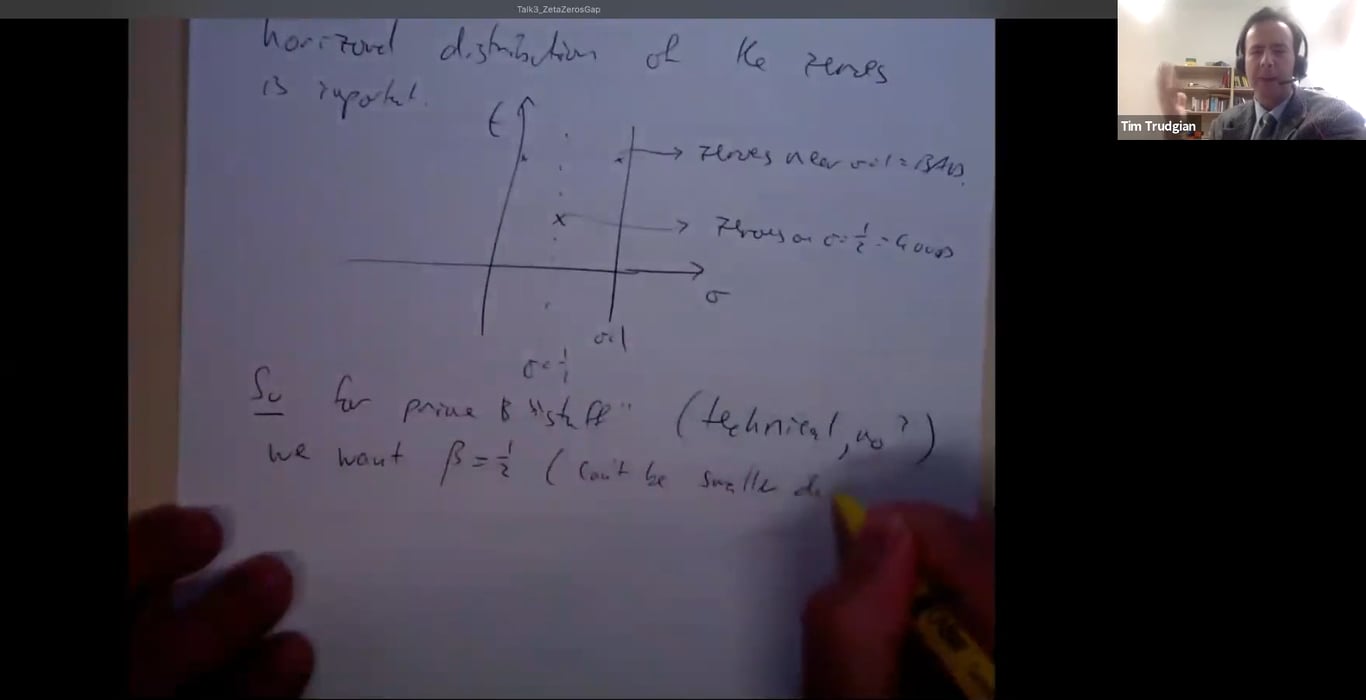 Talk3_ZetaZerosGap
Tim Trudgian
horizontal distribution of the zeroes
is important.
t
→ zeroes near σ=1 = BAD.
x
→ zeroes on σ=1/2 = GOOD
σ
σ=1
σ=
So for prime "stuff" (technical, no?)
we want β=1/2 (can't be smaller